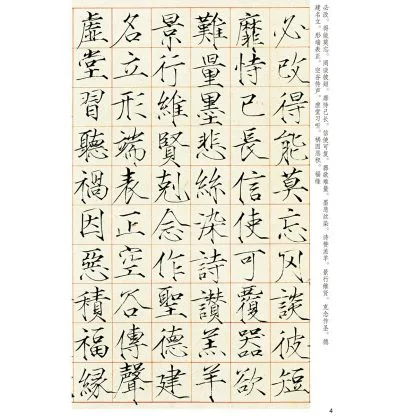 必改。得能莫忘。罔谈彼短。靡恃己长。信使可复。器欲难量。墨悲丝染。诗赞羔羊。景行维贤。克念作圣。德
建名立。形端表正。空谷传声。虚堂习听。祸因恶积。福缘
必改得能莫忘罔談彼短
靡恃己長信使可覆器欲
難量墨悲絲染詩讚羔羊
景行維賢剋念作聖德建
名立形端表正空谷傳聲
虛堂習聽禍因惡積福緣
4